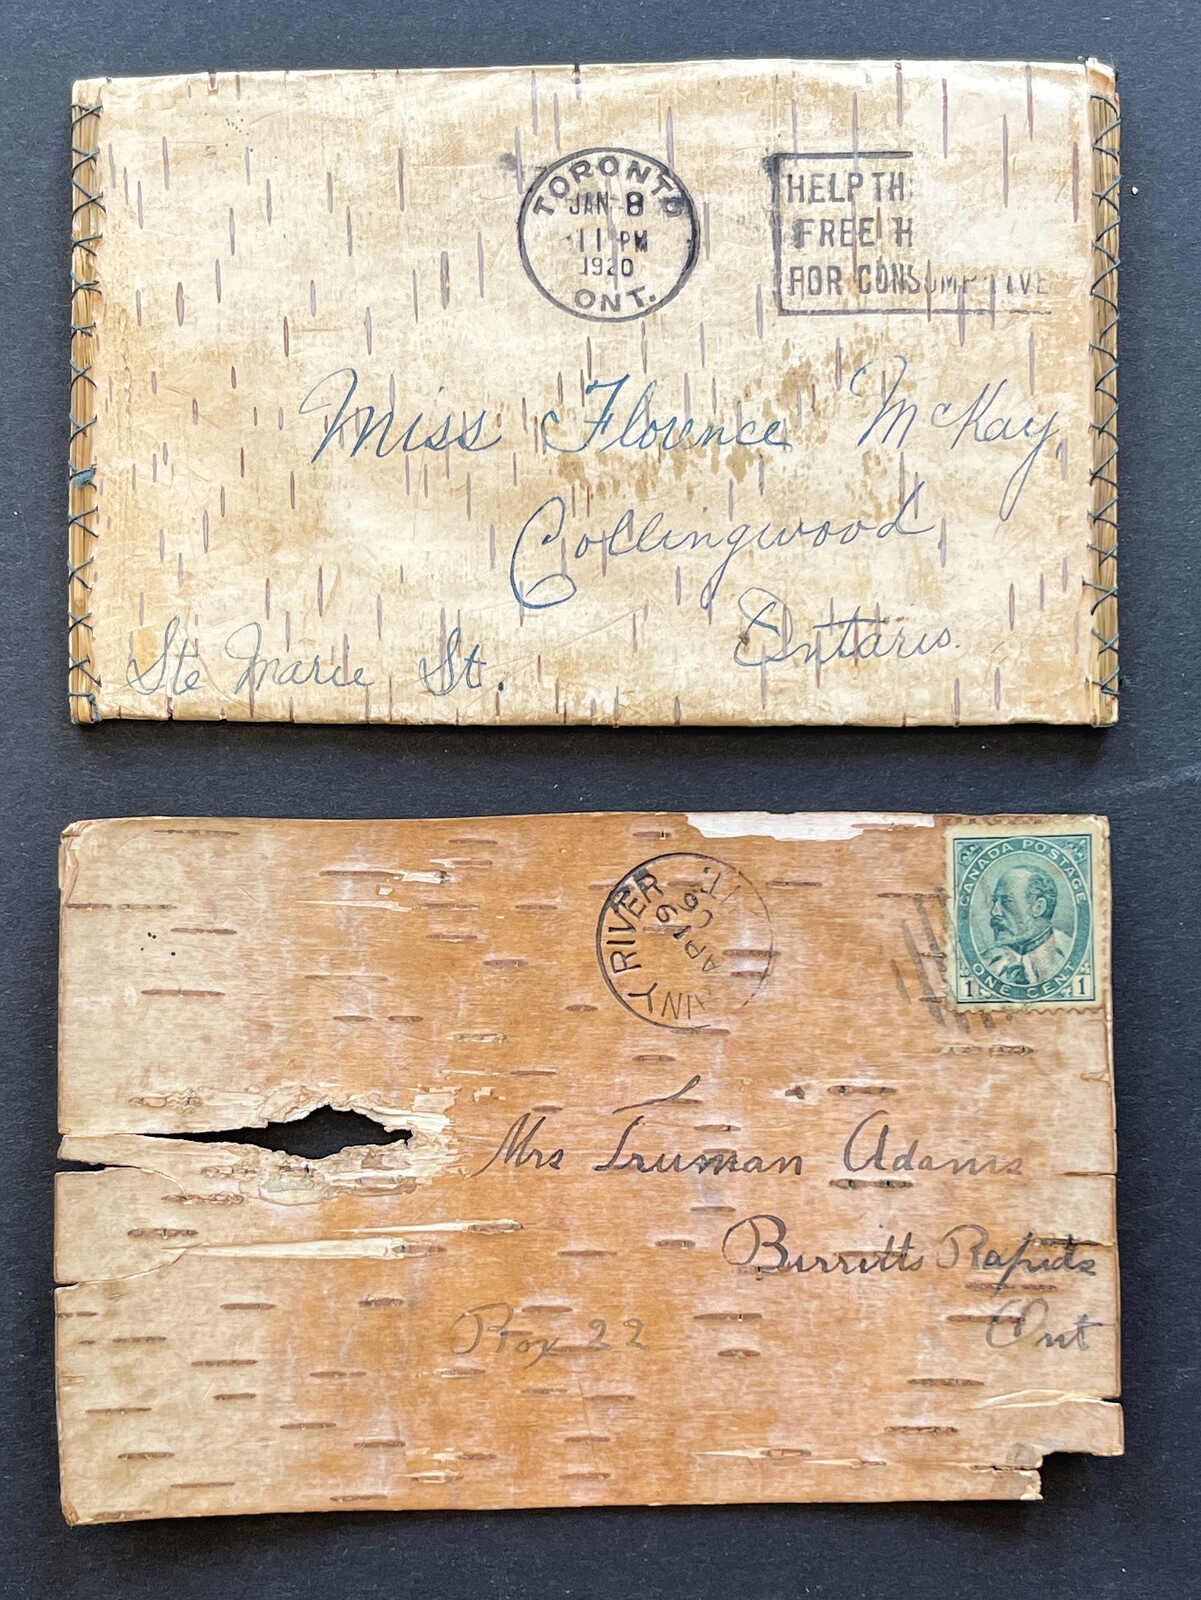 TORONTO
JAN 8
11 PM
1920
ONT.
HELP TH
FREE H
FOR CONSUMPTIVE
Miss Florence McKay,
Collingwood,
Ontario.
Ste Marie St.
INY RIVER
AP 16
09
CANADA POSTAGE
ONE CENT
1 1
Mrs Truman Adams
Burritts Rapids
Ont
Box 22